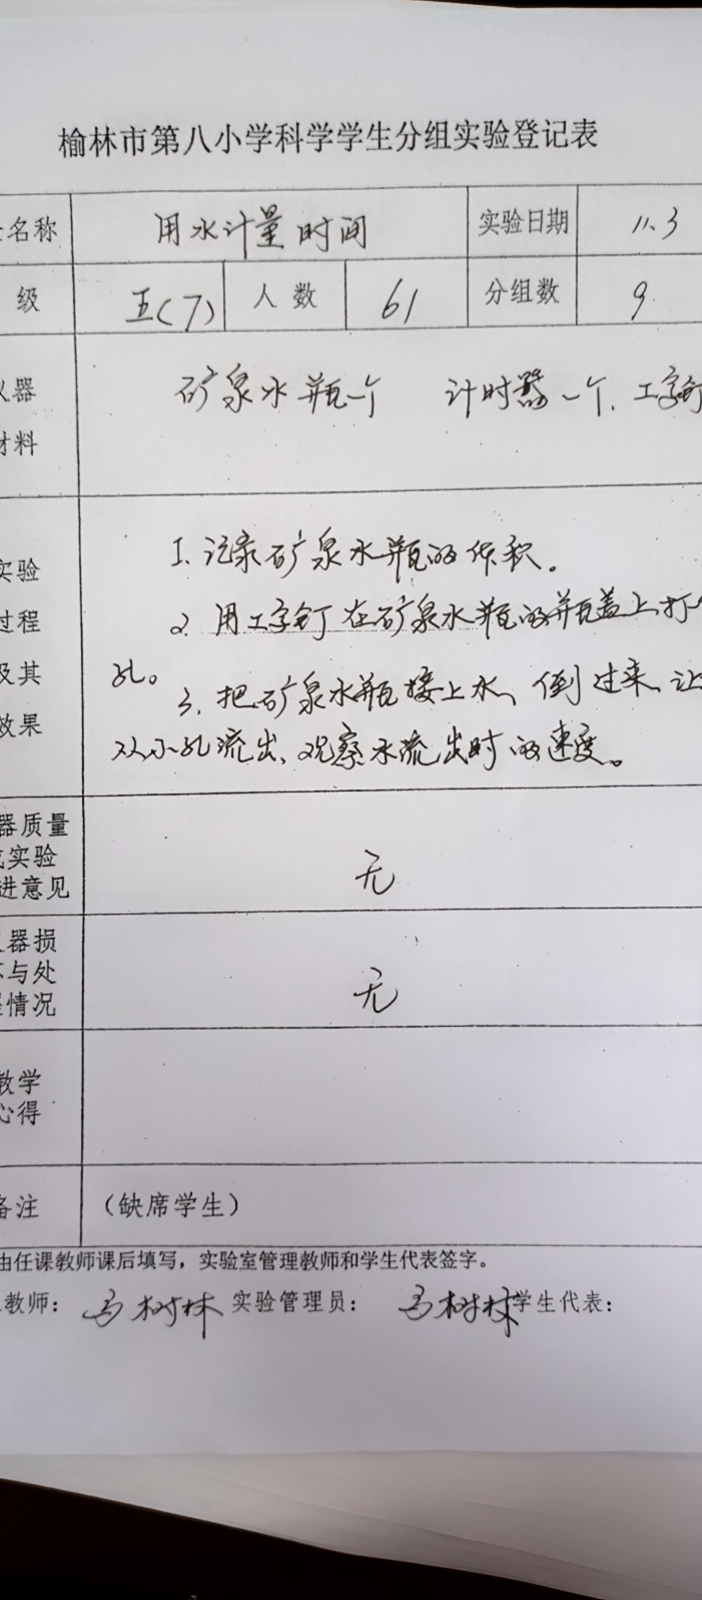 榆林市第八小学科学学生分组实验登记表
名称 用水计量时间 实验日期 11.3
级 五(7) 人数 61 分组数 9
仪器 矿泉水瓶一个 计时器一个、工字钉
材料
实验 1. 记录矿泉水瓶的体积。
过程 2. 用工字钉在矿泉水瓶的瓶盖上打
及其 孔。 3. 把矿泉水瓶接上水、倒过来、让
效果 从小孔流出、观察水流出时的速度。
器质量
实验 无
进意见
器损
与处 无
情况
教学
心得
备注 （缺席学生）
由任课教师课后填写，实验室管理教师和学生代表签字。
教师： 马树林 实验管理员： 马树林 学生代表：